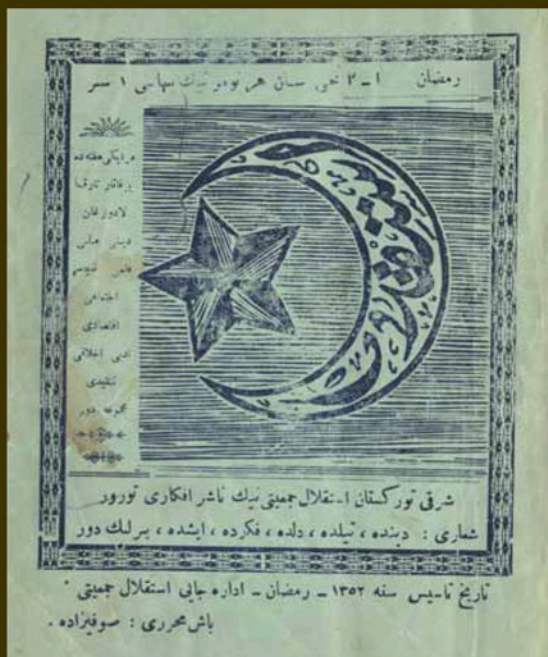 رمضان ١ـ٢ نچی سان هر نومورنیك بهاسی ١ سر
هر ایكی هفته ده
بر قاتار تارقا
لادورغان
دینی ملی
علمی
اجتماعی
اقتصادی
ادبی اخلاقی
تنقیدی
مجموعه دور
استقلال
شرقی توركستان استقلال جمعیتی نیك ناشر افكاری تورور
شعاری : دینده ، تیلده ، دلده ، فكرده ، ایشده ، بیرلیك دور
تاریخ تاسیس سنه ١٣٥٢ ـ رمضان ـ اداره جایی استقلال جمعیتی
باش محرری : صوفیزاده .